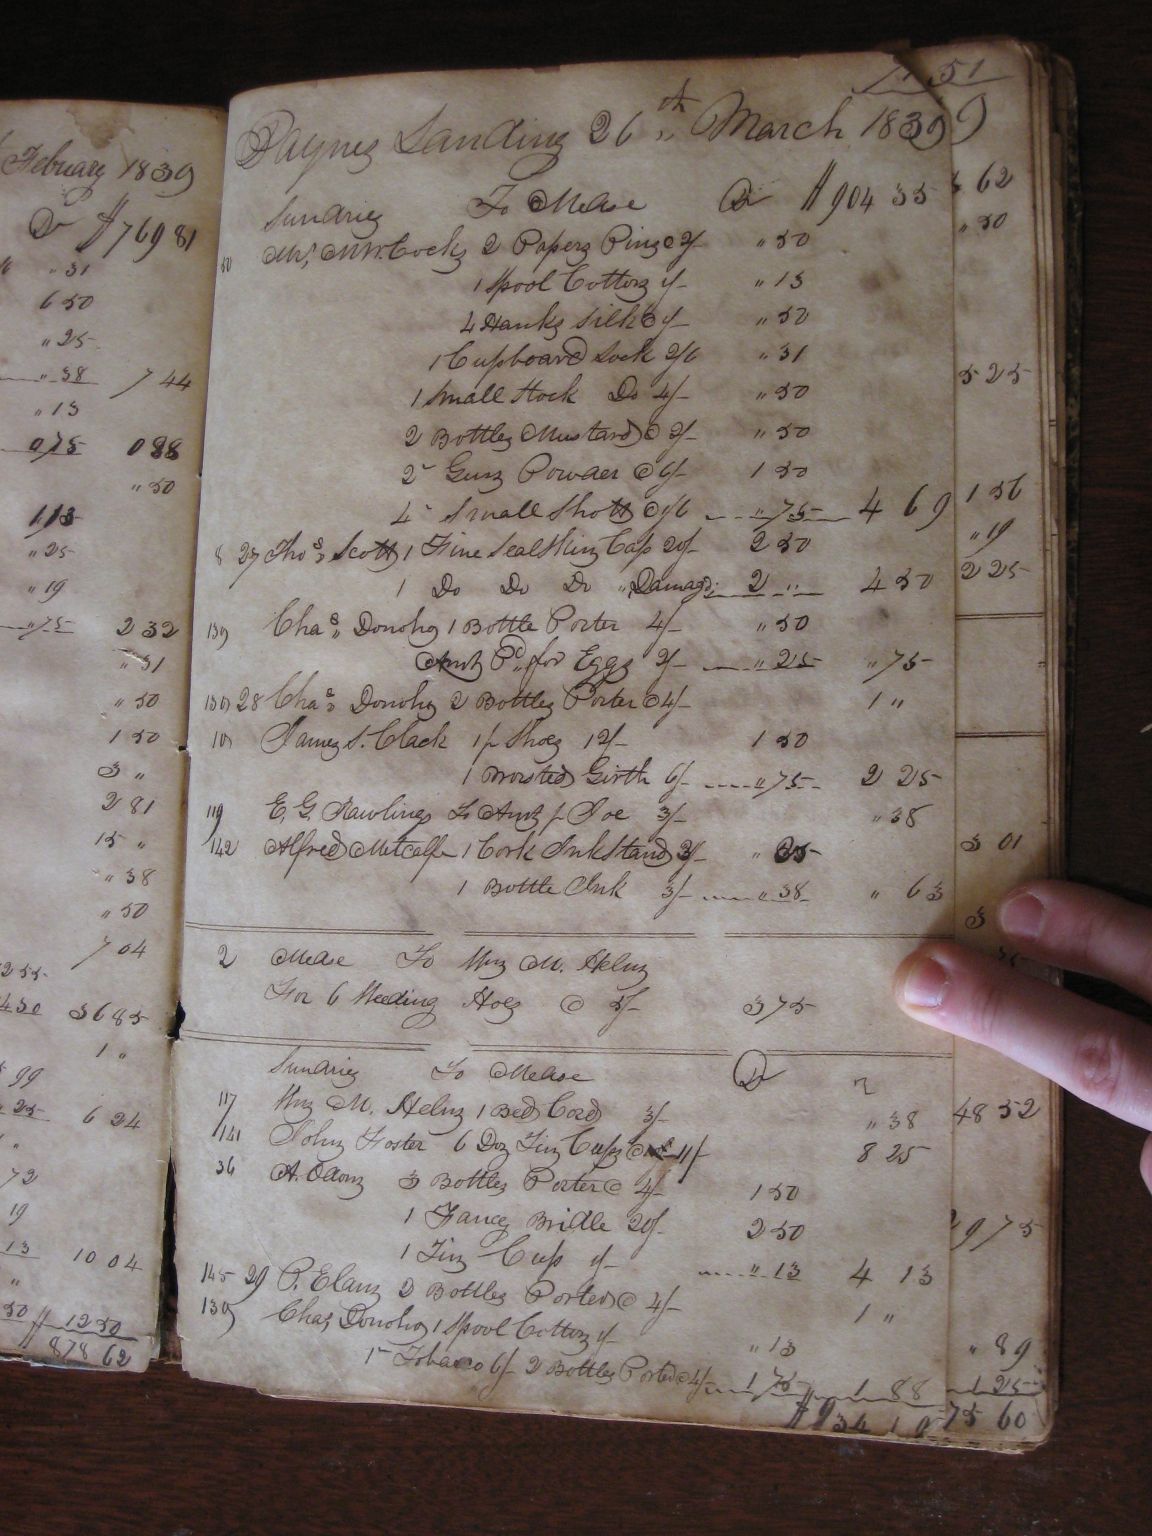 February 1839
Dr $769 81
" 31
6 50
" 25
" 38 7 44
" 13
075 088
" 50
113
" 25
" 19
" 75 2 32
" 31
" 50
1 50
3 "
2 81
15 "
" 38
" 50
7 04
36 85
1 "
99
25 6 24
72
19
13 10 04
50 $ 12 50
878 62
151
Paynes Landing 26th March 1839
Sundries To Mdse Dr $904 35
50 Mrs M. W. Cocks 2 Papers Pins @ 2/- " 50
1 Spool Cotton 1/- " 13
4 Hanks Silk @ 1/- " 50
1 Cupboard Lock 2/6 " 31
1 Small Stock Do 4/- " 50
2 Bottles Mustard @ 2/- " 50
2 " Gun Powder @ 6/- 1 50
4 " Small Shott @ 1/6 " 75 4 69
8 27 Thos Scott 1 Fine Seal Skin Cap 20/- 2 50
1 Do Do Do " Damagd 2 " 4 50
139 Chas Donoho 1 Bottle Porter 4/- " 50
Amt Pd for Eggs 2/- " 25 " 75
139 28 Chas Donoho 2 Bottles Porter @ 4/- 1 "
101 James S. Clack 1 pr Shoes 12/- 1 50
1 Worsted Girth 6/- " 75 2 25
119 E. G. Rawlings To Amt pr Joe 3/- " 38
142 Alfred Metcalfe 1 Cork Inkstand 2/- " 25
1 Bottle Ink 3/- " 38 " 63
2 Mdse To Wm M. Helm
For 6 Weeding Hoes @ 5/- 3 75
Sundries To Mdse Dr
117 Wm M. Helm 1 Bed Cord 3/- " 38
141 John Foster 6 Doz Tin Cups @ 11/- 8 25
36 A. Odom 3 Bottles Porter @ 4/- 1 50
1 Fancy Bridle 20/- 2 50
1 Tin Cup 1/- " 13 4 13
145 29 P. Elam 2 Bottles Porter @ 4/- 1 "
139 Chas Donoho 1 Spool Cotton 1/- " 13
1 " Tobacco 6/- 2 Bottles Porter @ 4/- 1 75 1 88
$934 19
9
62
" 50
5 25
1 56
" 19
2 25
3 01
3
48 52
9 75
" 89
1 25
75 60